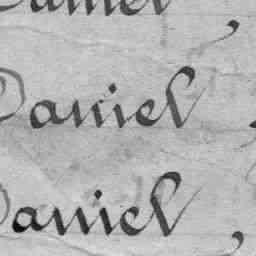 Daniel,
Daniel
Daniel,